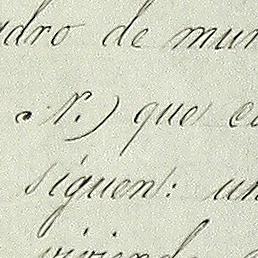 adro de mur
. N.) que c
siguen: un
viviend